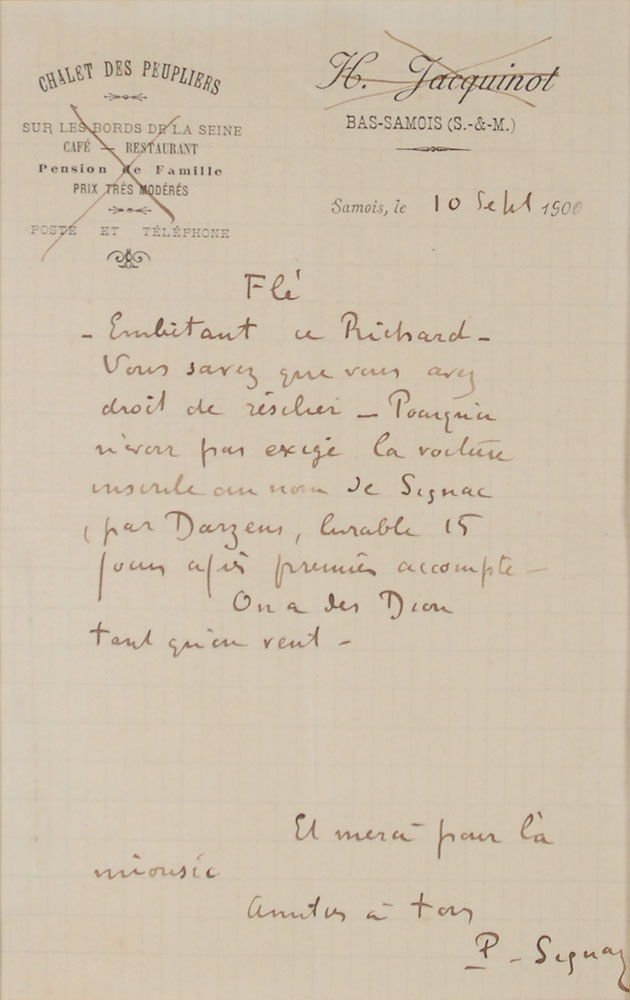 CHALET DES PEUPLIERS
SUR LES BORDS DE LA SEINE
CAFÉ — RESTAURANT
Pension de Famille
PRIX TRÈS MODÉRÉS
POSTE ET TÉLÉPHONE
H. Jacquinot
BAS-SAMOIS (S.-&-M.)
Samois, le 10 Sept 1900
Flé
- Embêtant ce Richard -
Vous savez que vous avez
droit de résilier - Pourquoi
n'avoir pas exigé la voiture
inscrite au nom de Signac
, par Darzens, livrable 15
jours après premier accompte -
On a des Dion
tant qu'on veut -
Et merci pour la
miousic
Amitiés à tous
P - Signac